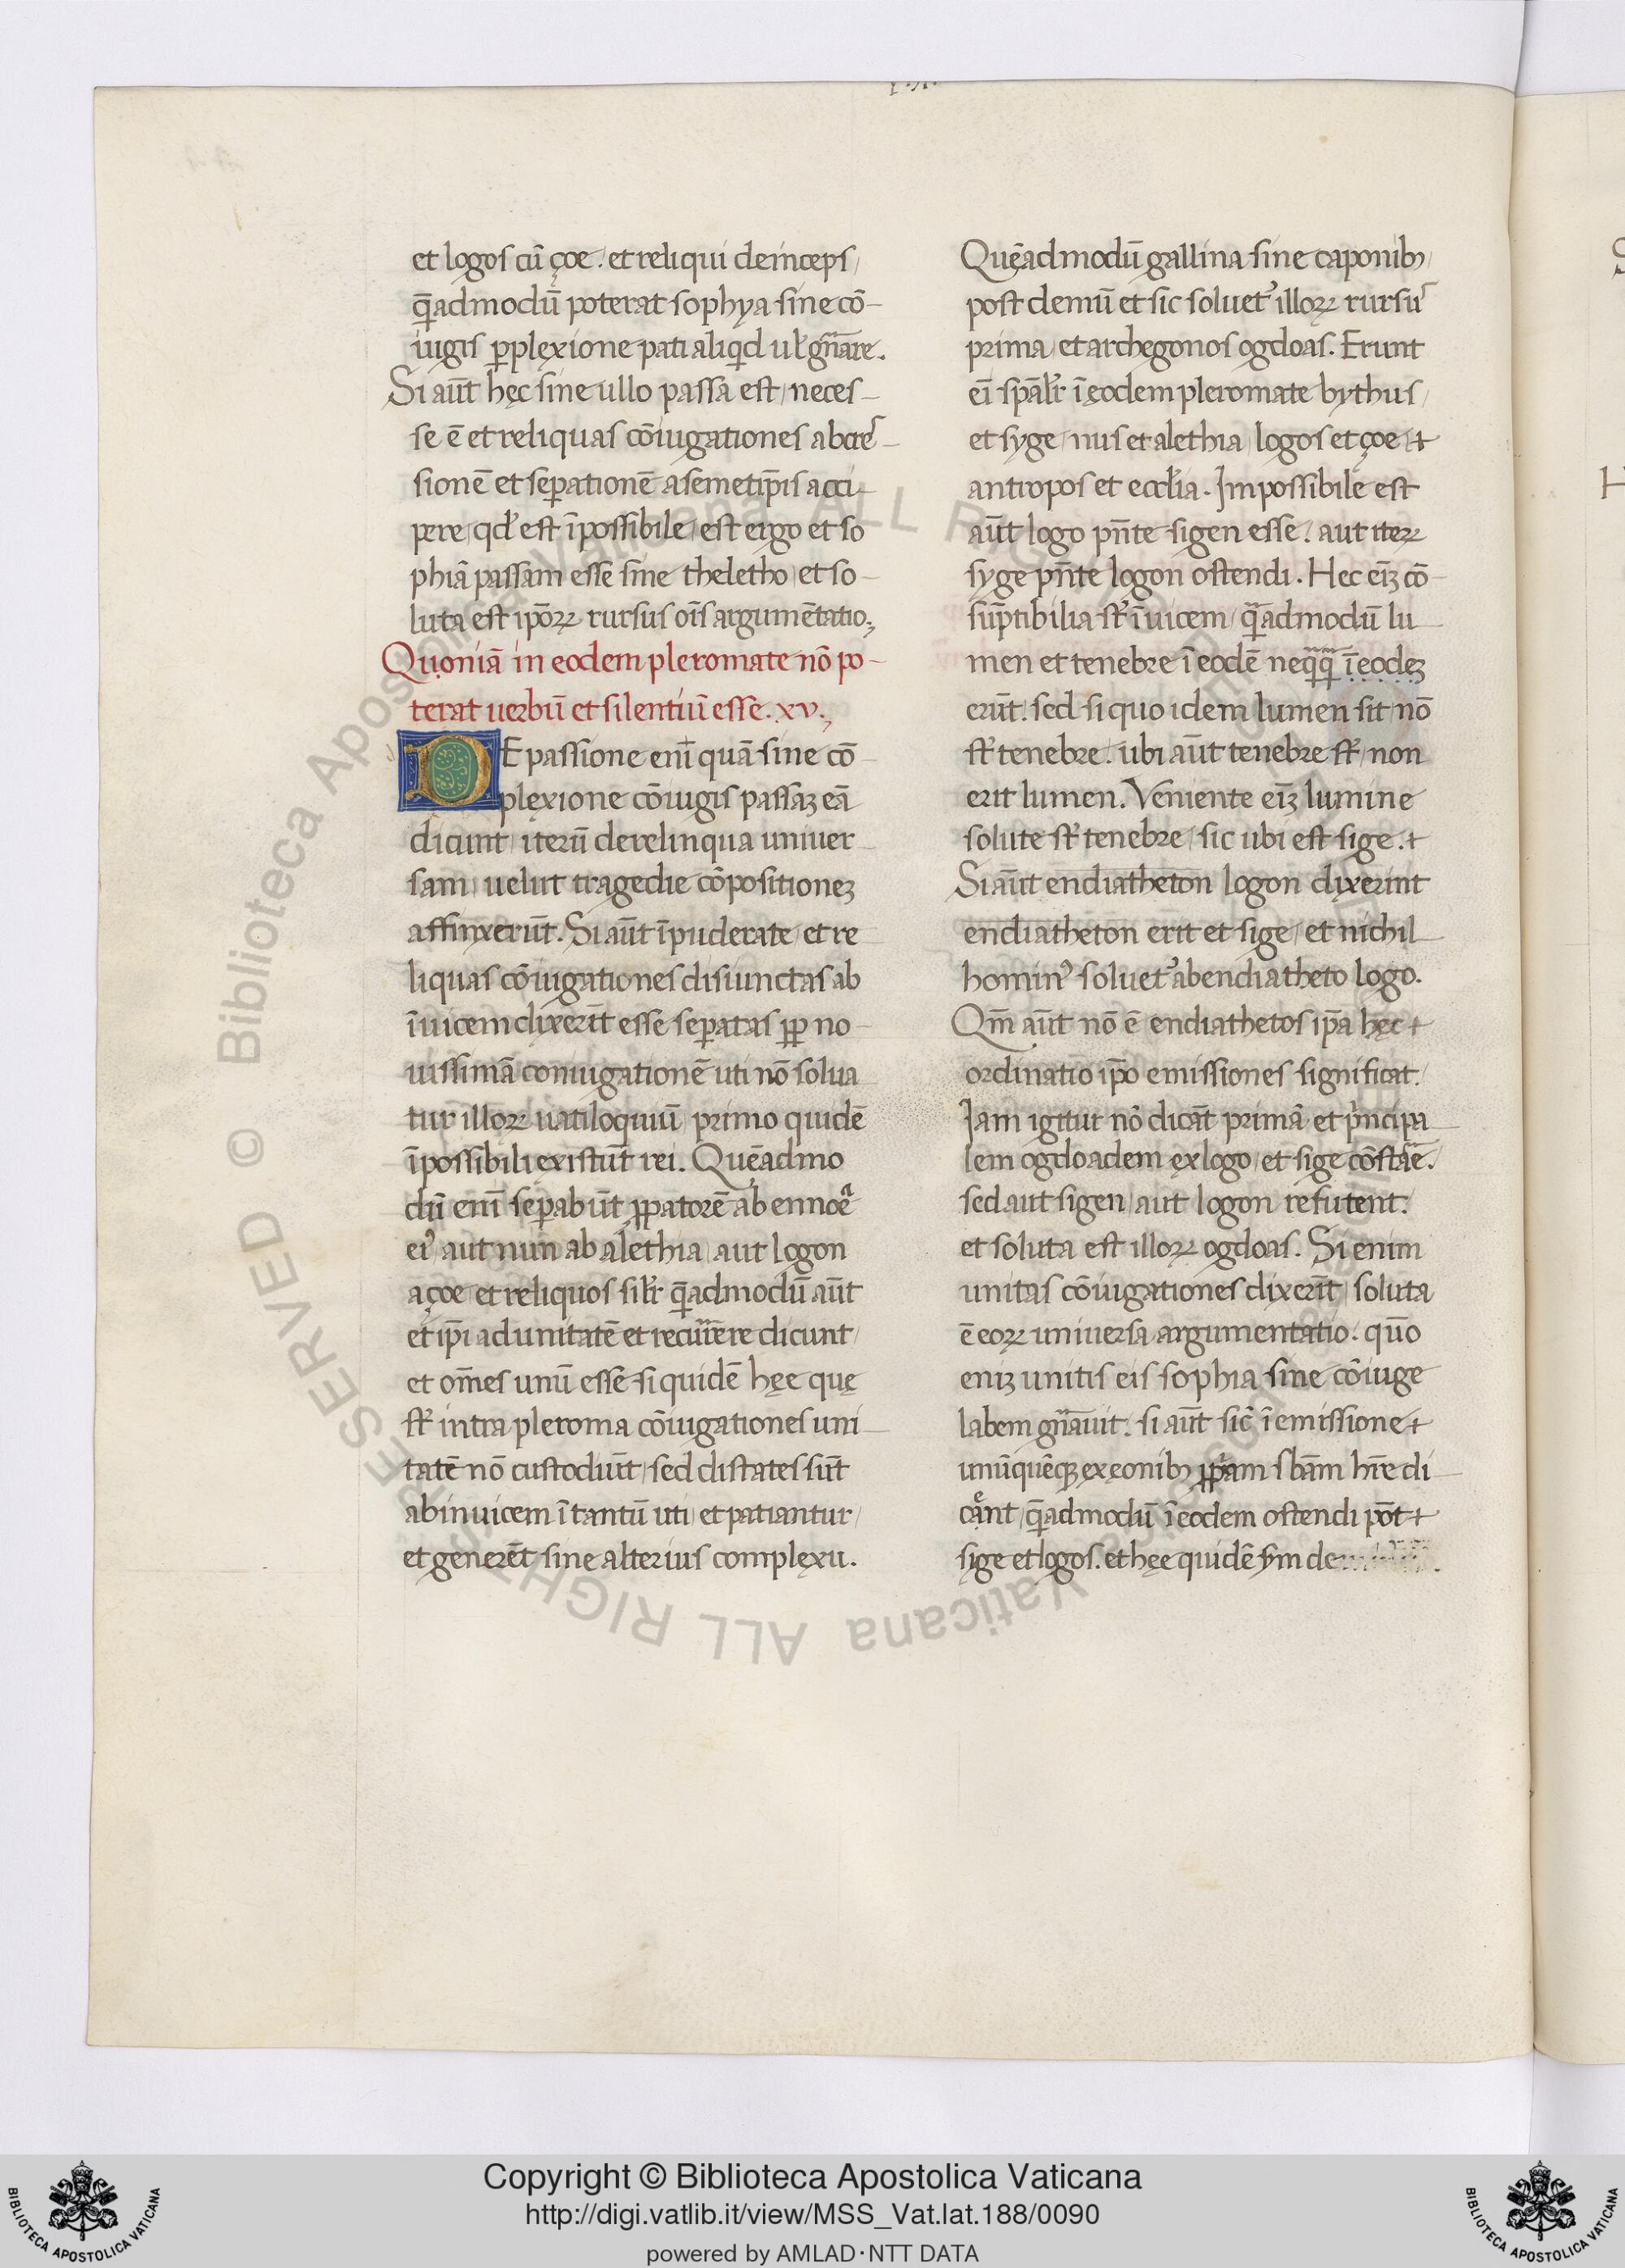 et logos cū çoe. et reliqui deinceps/
q̄admodū poterat sophya sine cō-
iugis ꝑplęxione pati aliqd ul' gn̄are.
Si aūt hęc sine ullo passa est/ neces-
se ē et reliquas cōiugationes abscē-
sionē et sepationē a semetip̄is acci-
pere/ qd' est īpossibile/ est ergo et so
phiā passam esse sine theletho/ et so-
luta est ip̄oꝝ rursus oīs argumētatio;
Quoniā in eodem pleromate nō po-
terat uerbū et silentiū esse. xv.
DE passione enī quā sine cō-
plęxione cōiugis passaꝫ eā
dicunt/ iterū derelinqua univer-
sam/ uelut tragedie cōpositioneꝫ
affinxerūt. Si aūt īpuderate/ et re
liquas cōiugationes disiunctas ab
īuicem dixerīt esse sepatas ꝓp no-
uissimā coniugationē uti nō solua
tur illoꝝ uatiloquiū/ primo quidē
īpossibili existūt rei. Quēadmo
dū enī sepabūt ꝓpatorē ab ennoēa
ei⁹ aut nun ab alethia/ aut logon
a çoe et reliquos silr̄ q̄admodū aūt
et ip̄i ad unitatē et recurrēre dicunt/
et om̄es unū esse si quidē hęe quę
st̄ intra pleroma cōiugationes uni-
tatē nō custodiūt/ sed distates sūt
ab inuicem ī tantū uti et patiantur/
et generēt sine alterius complęxu.
Quęadmodū gallina sine caponibꝫ/
post demū et sic soluet᾿ illoꝝ rursū
prima/ et archegonos ogdoas. Erunt
eī spālr̄ ī ęodem pleromate bythus/
et syge/ nus et alethia/ logos et çoe/ ⁊
antropos et eccl'ia. Impossibile est
aūt logo pn̄te sigen esse. aut iteꝝ
syge pn̄te logon ostendi. Hec eīꝫ cō-
sūptibilia st̄ īuicem/ q̄admodū lu-
men et tenebre ī eodē neq̄q̄ ī eodeꝫ
erūt. sed si quo idem lumen sit nō
st̄ tenebre. ubi aūt tenebre st̄/ non
erit lumen. Veniente eīꝫ lumine
solute st̄ tenebre/ sic ubi est sige. ⁊
Si aūt endiatheton logon dixerint
endiatheton erit et sige/ et nichil-
homin⁹ soluet᾿ ab endiatheto logo.
Qm̄ aūt nō ē endiathetos ip̄a hęc ⁊
ordinatio ip̄o emissiones significat.
Iam igitur nō dicāt primā et pncipa-
lem ogdoadem ęx logo/ et sige cōstare.
sed aut sigen/ aut logon refutent.
et soluta est illoꝝ ogdoas. Si enim
unitas cōiugationes dixerīt/ soluta
ē eoꝝ universa argumentatio. quō
eniꝫ unitis eis sophia sine cōiuge
labem gn̄auit. si aūt sic ī emissione ⁊
unūquēqꝫ ęx ęonibꝫ ꝓpam sbām hr̄e di-
cant/ q̄admodū ī eodem ostendi pōt ⁊
sige et logos. et hęe quidē